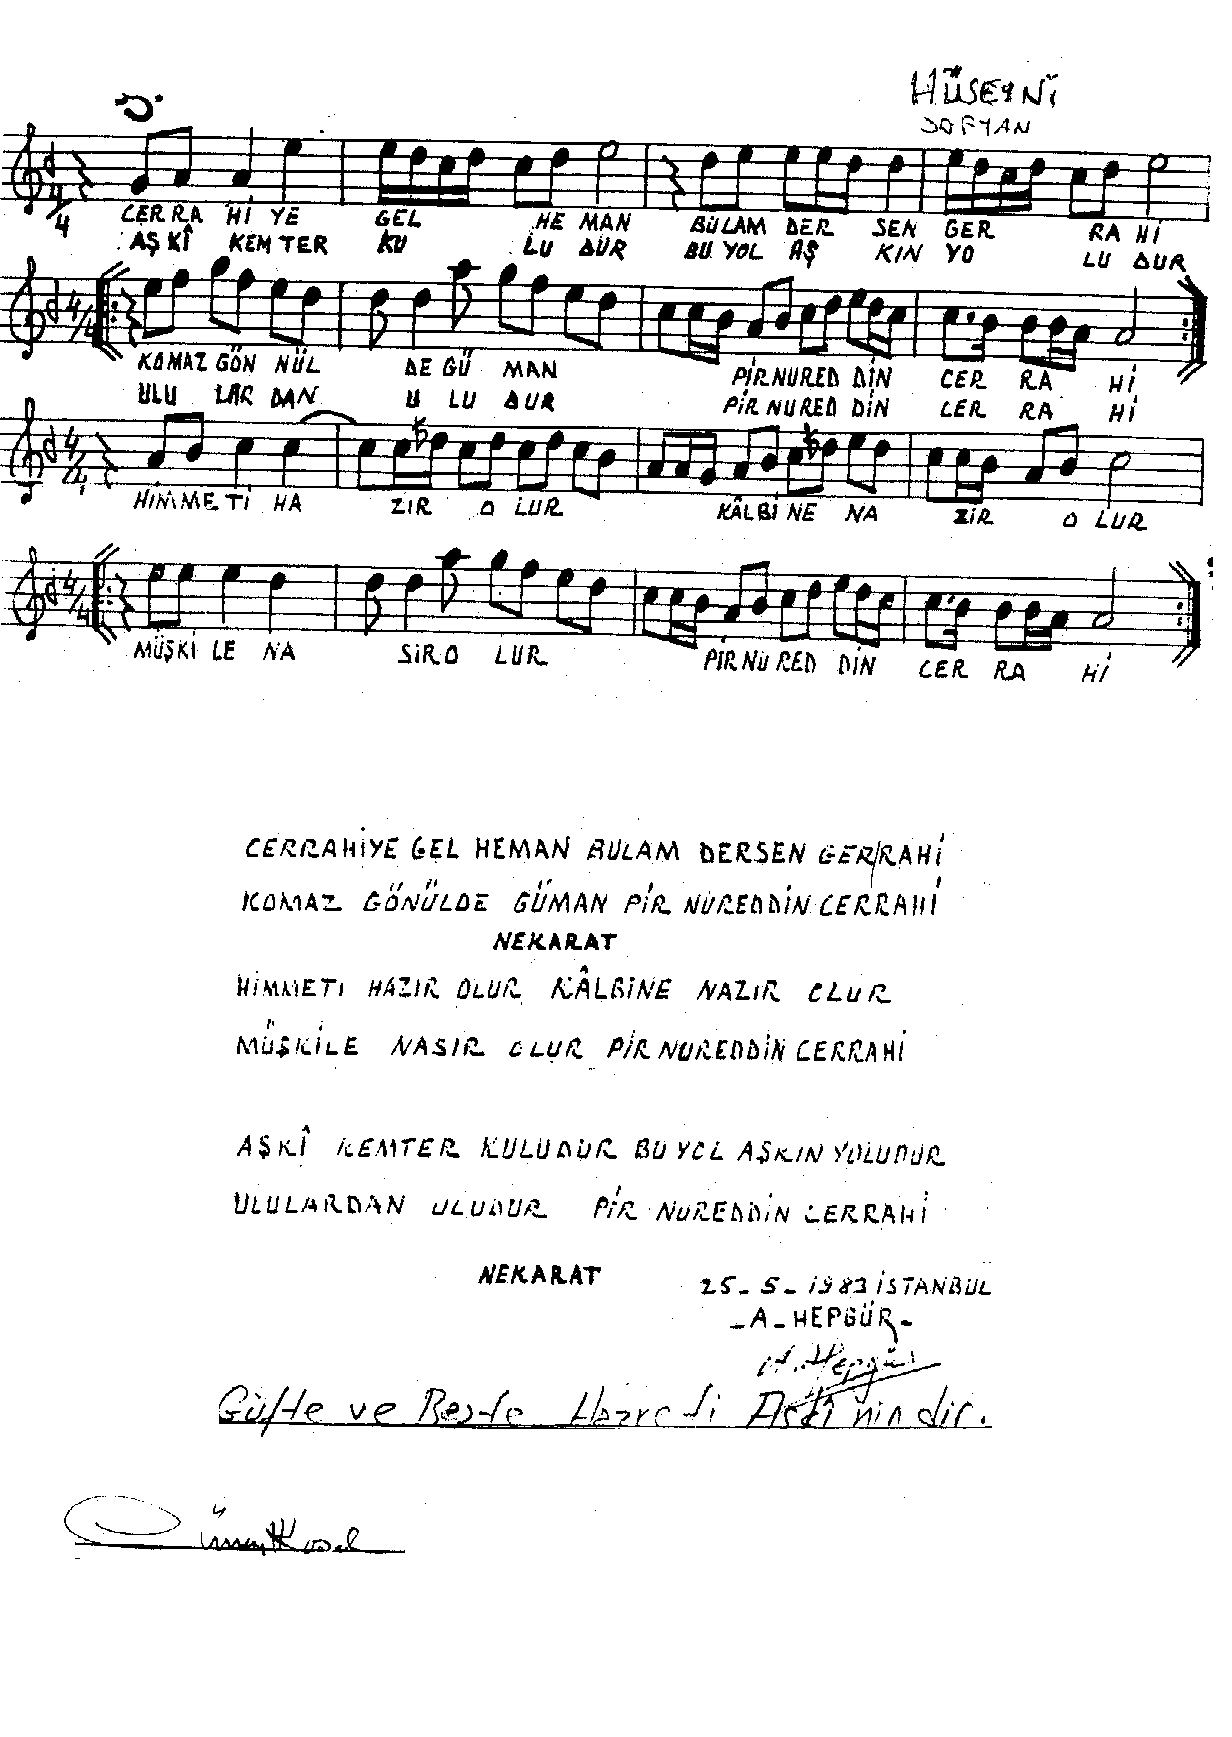 HÜSEYNİ
SOFYAN
4/4
CERRA Hİ YE GEL HE MAN BULAM DER SEN GER RA Hİ
AŞKÎ KEMTER KU LU DUR BU YOL AŞ KIN YO LU DUR
4/4
KOMAZ GÖN NÜL DE GÜ MAN PİR NURED DİN CER RA Hİ
ULU LAR DAN U LU DUR PİR NURED DİN CER RA Hİ
4/4
HİMME Tİ HA ZIR O LUR KÂLBİ NE NA ZİR O LUR
4/4
MÜŞKİ LE NA SİR O LUR PİR NU RED DİN CER RA Hİ
CERRAHİYE GEL HEMAN BULAM DERSEN GERRAHİ
KOMAZ GÖNÜLDE GÜMAN PİR NUREDDİN CERRAHİ
NEKARAT
HİMMETI HAZIR OLUR KÂLBİNE NAZIR OLUR
MÜŞKİLE NASIR OLUR PİR NUREDDİN CERRAHİ
AŞKÎ KEMTER KULUDUR BU YOL AŞKIN YOLUDUR
ULULARDAN ULUDUR PİR NUREDDİN CERRAHİ
NEKARAT
25-5-1983 İSTANBUL
-A-HEPGÜR-
A. Hepgür
Güfte ve Beste Hazreti Aşkî'nindir.